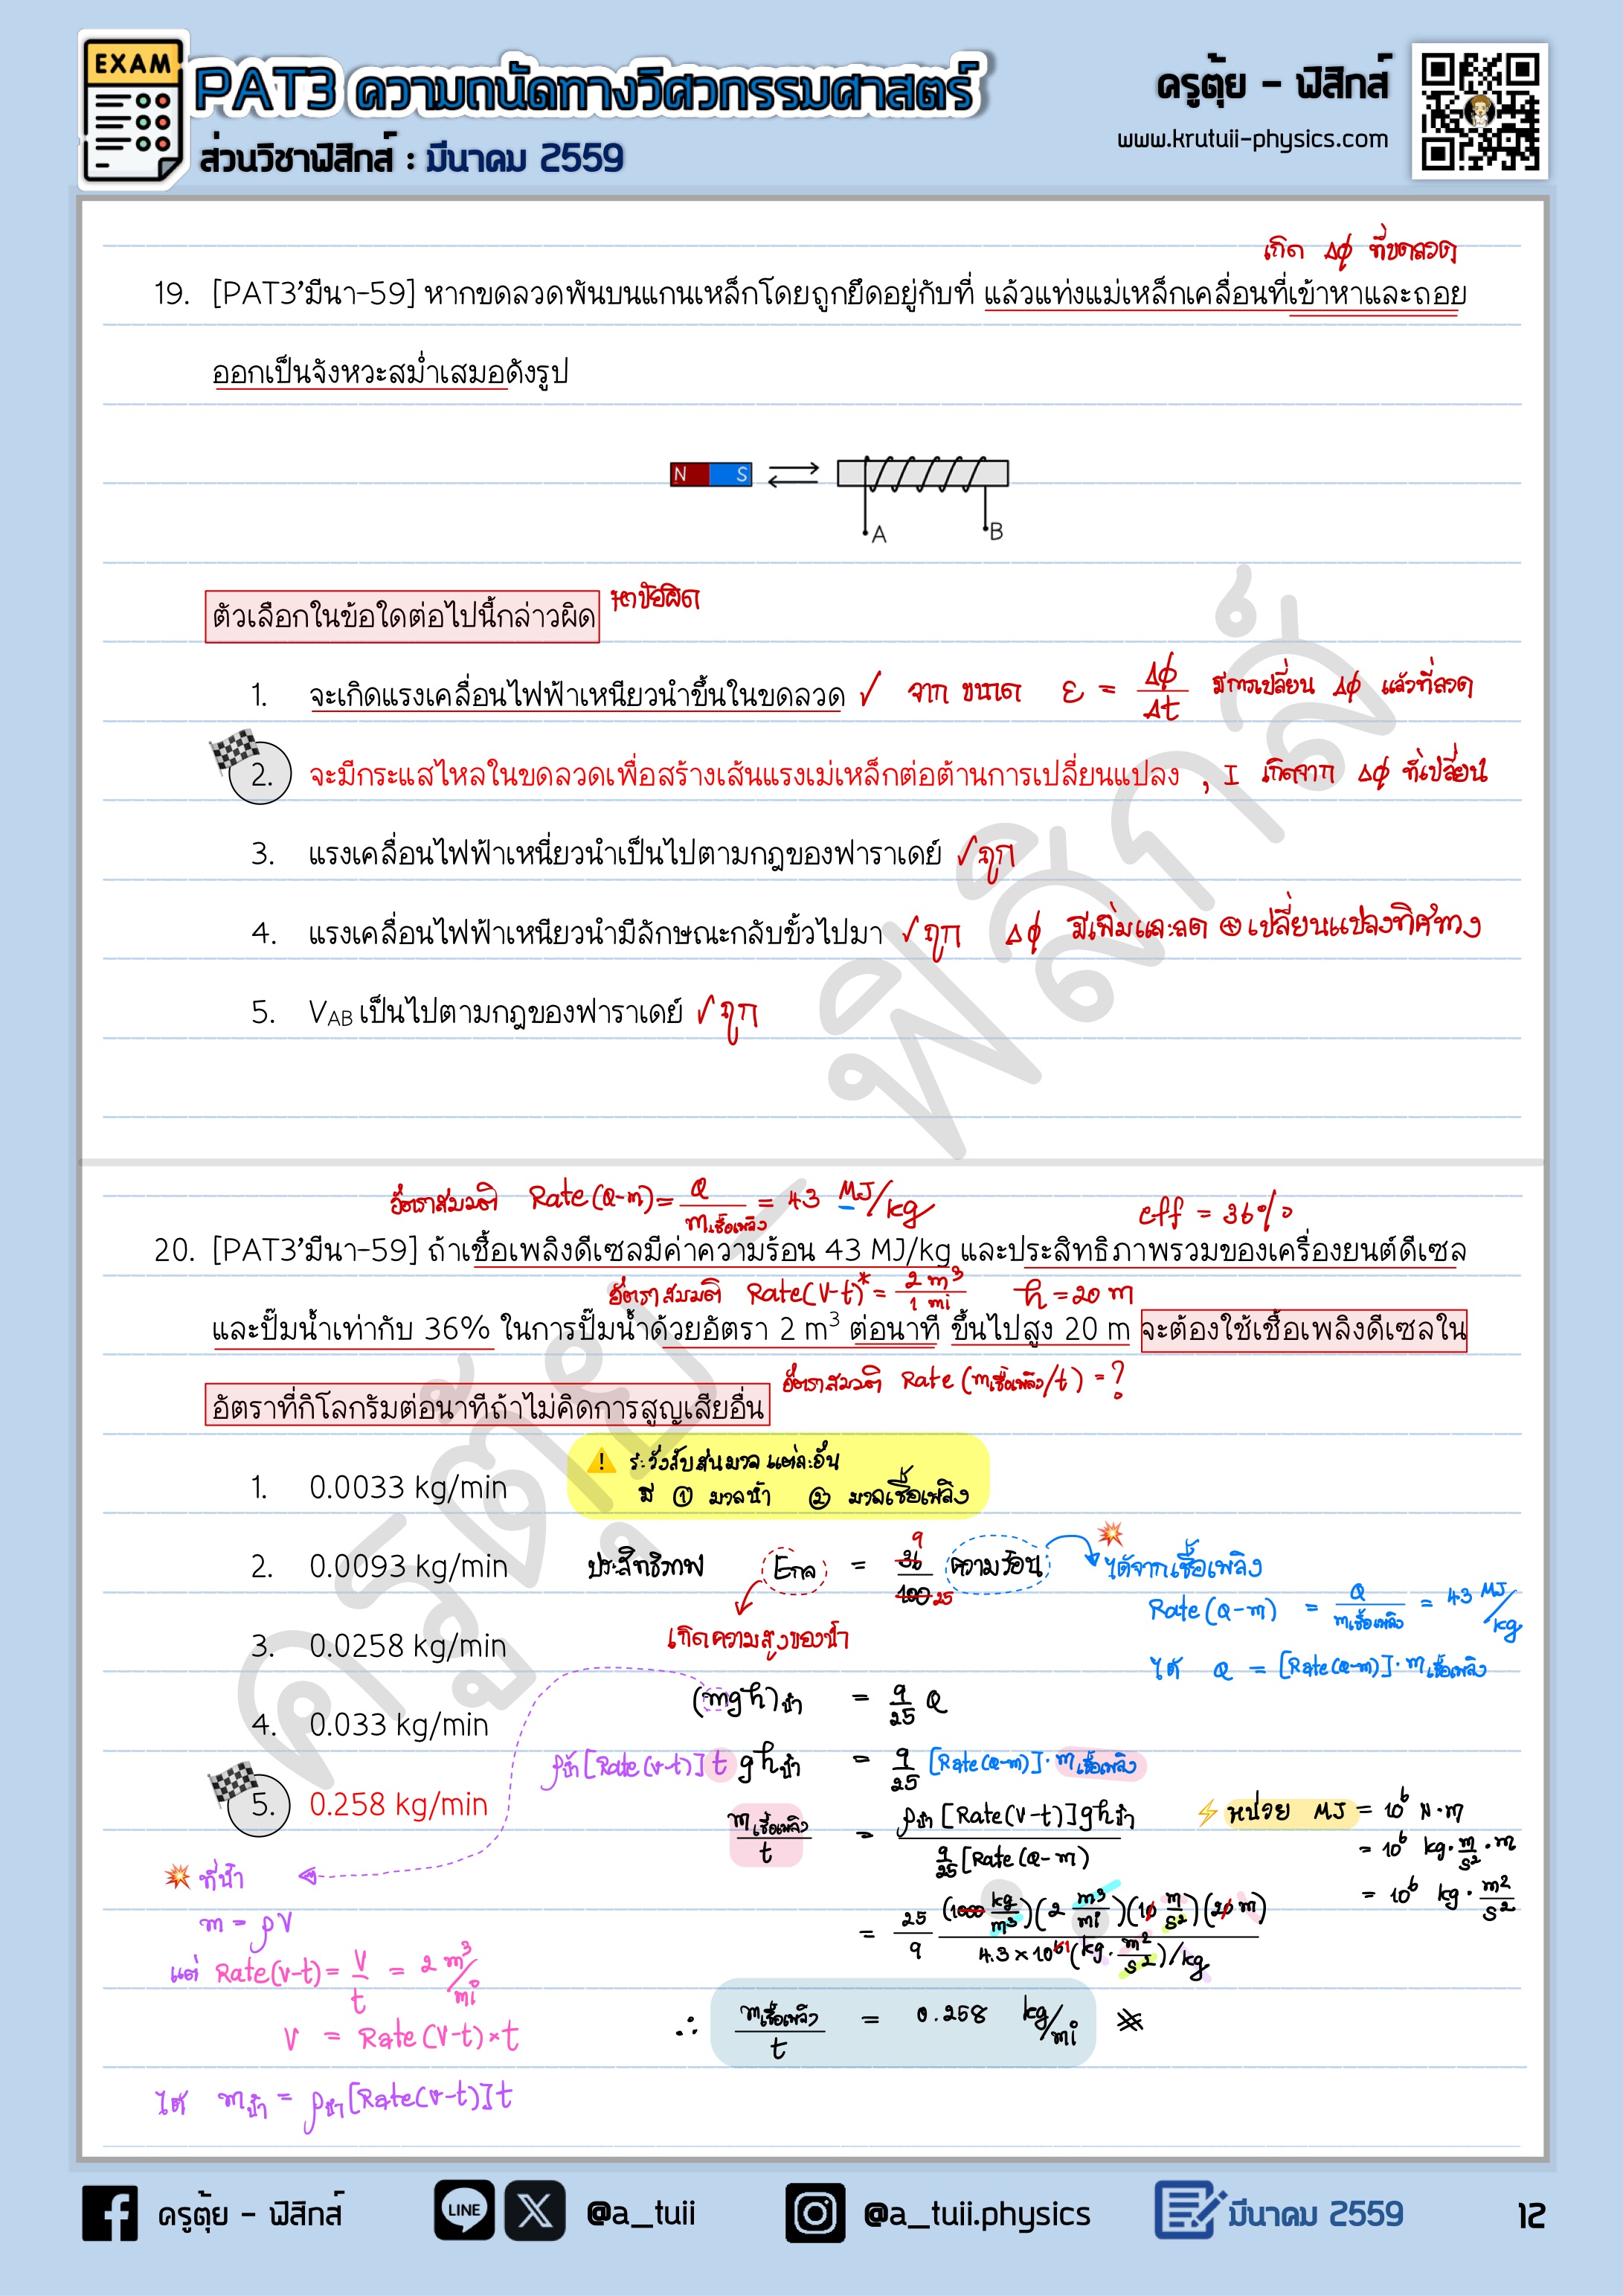 EXAM
PAT3 ความถนัดทางวิศวกรรมศาสตร์
ส่วนวิชาฟิสิกส์ : มีนาคม 2559
ครูตุ้ย - ฟิสิกส์
www.krutuii-physics.com
เกิด Δϕ ที่ขดลวด
19. [PAT3'มีนา-59] หากขดลวดพันบนแกนเหล็กโดยถูกยึดอยู่กับที่ แล้วแท่งแม่เหล็กเคลื่อนที่เข้าหาและถอย
ออกเป็นจังหวะสม่ำเสมอดังรูป
N S
A B
ตัวเลือกในข้อใดต่อไปนี้กล่าวผิด หาข้อผิด
1. จะเกิดแรงเคลื่อนไฟฟ้าเหนียวนำขึ้นในขดลวด ✓ จาก ขนาด ε = Δϕ/Δt มีการเปลี่ยน Δϕ แล้วที่ลวด
2. จะมีกระแสไหลในขดลวดเพื่อสร้างเส้นแรงเม่เหล็กต่อต้านการเปลี่ยนแปลง , I เกิดจาก Δϕ ที่เปลี่ยน
3. แรงเคลื่อนไฟฟ้าเหนี่ยวนำเป็นไปตามกฎของฟาราเดย์ ✓ ถูก
4. แรงเคลื่อนไฟฟ้าเหนียวนำมีลักษณะกลับขั้วไปมา ✓ ถูก Δϕ มีเพิ่มและลด ⊕ เปลี่ยนแปลงทิศทาง
5. VAB เป็นไปตามกฎของฟาราเดย์ ✓ ถูก
อัตราสมมติ Rate(Q-m) = Q/mเชื้อเพลิง = 43 MJ/kg eff = 36%
20. [PAT3'มีนา-59] ถ้าเชื้อเพลิงดีเซลมีค่าความร้อน 43 MJ/kg และประสิทธิภาพรวมของเครื่องยนต์ดีเซล
อัตราสมมติ Rate(V-t)* = 2 m³/1 mi h = 20 m
และปั๊มน้ำเท่ากับ 36% ในการปั๊มน้ำด้วยอัตรา 2 m³ ต่อนาที ขึ้นไปสูง 20 m จะต้องใช้เชื้อเพลิงดีเซลใน
อัตราสมมติ Rate (mเชื้อเพลิง/t) = ?
อัตราที่กิโลกรัมต่อนาทีถ้าไม่คิดการสูญเสียอื่น
⚠ ระวังสับสนมวล แต่ละอัน
มี ① มวลน้ำ ② มวลเชื้อเพลิง
1. 0.0033 kg/min
2. 0.0093 kg/min
3. 0.0258 kg/min
4. 0.033 kg/min
5. 0.258 kg/min
ประสิทธิภาพ Eกล = 36/100 ความร้อน
9
25
เกิดความสูงของน้ำ
ได้จากเชื้อเพลิง
Rate (Q-m) = Q/mเชื้อเพลิง = 43 MJ/kg
ได้ Q = [Rate(Q-m)]·mเชื้อเพลิง
(mgh)น้ำ = 9/25 Q
ρน้ำ[Rate(v-t)] t ghน้ำ = 9/25 [Rate(Q-m)]·mเชื้อเพลิง
mเชื้อเพลิง/t = ρน้ำ [Rate(V-t)]ghน้ำ / 9/25 [Rate (Q-m)
⚡ หน่วย MJ = 10⁶ N·m
= 10⁶ kg·m/s²·m
= 10⁶ kg·m²/s²
= 25/9 (1000 kg/m³)(2 m³/mi)(10 m/s²)(20 m) / 4.3×10⁶¹(kg·m²/s²)/kg
∴ mเชื้อเพลิง/t = 0.258 kg/mi
ที่น้ำ
m = ρV
แต่ Rate(v-t) = V/t = 2 m³/mi
V = Rate(V-t)×t
ได้ mน้ำ = ρน้ำ[Rate(v-t)]t
ครูตุ้ย - ฟิสิกส์
ครูตุ้ย - ฟิสิกส์
LINE
@a_tuii
@a_tuii.physics
มีนาคม 2559
12